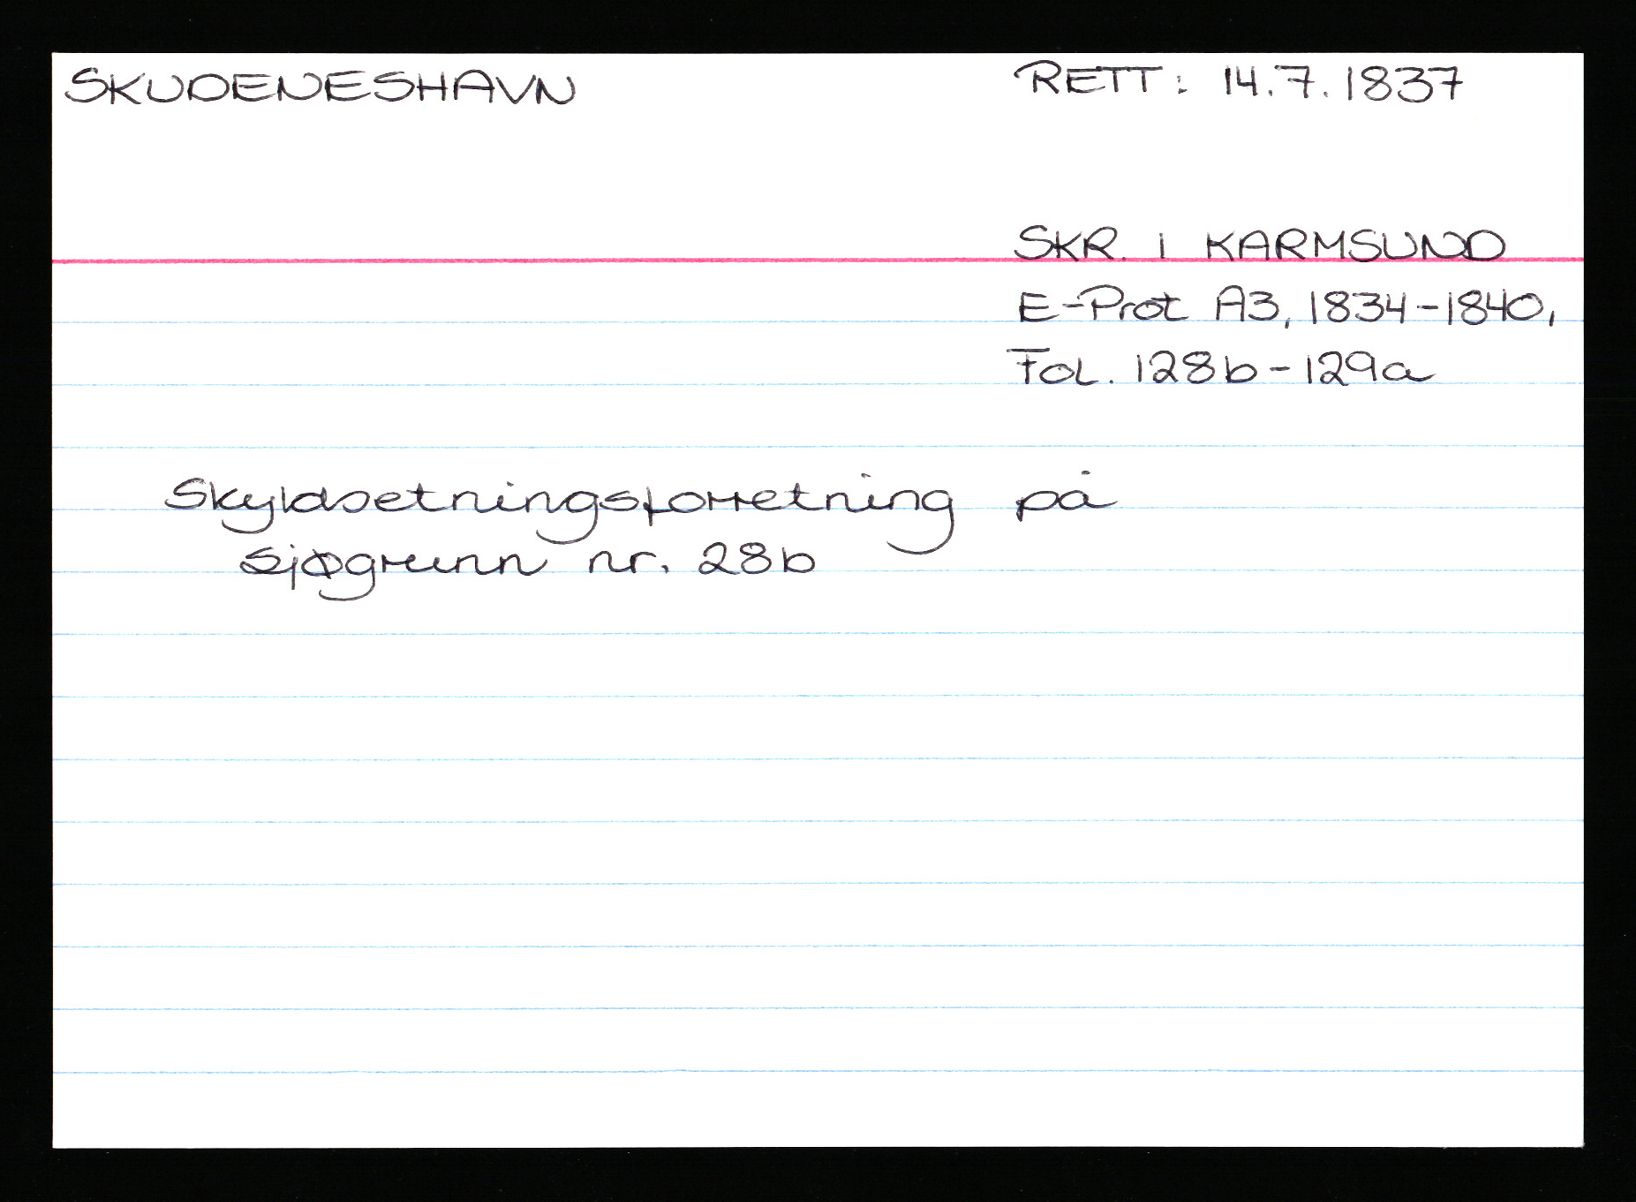 SKUDENESHAVN
RETT: 14.7.1837
SKR. I KARMSUND
E-Prot A3, 1834-1840,
Fol. 128b-129a
Skyldsetningsforretning på
sjøgrunn nr. 28b